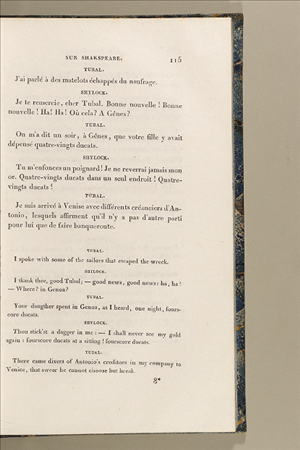 SUR SHAKSPEARE. 115
TUBAL.
J'ai parlé à des matelots échappés du naufrage.
SHYLOCK.
Je te remercie, cher Tubal. Bonne nouvelle! Bonne
nouvelle! Ha! Ha! Où cela? A Gênes?
TUBAL.
On m'a dit un soir, à Gênes, que votre fille y avait
dépensé quatre-vingts ducats.
SHYLOCK.
Tu m'enfonces un poignard! Je ne reverrai jamais mon
or. Quatre-vingts ducats dans un seul endroit! Quatre-
vingts ducats!
TUBAL.
Je suis arrivé à Venise avec différents créanciers d'An-
tonio, lesquels affirment qu'il n'y a pas d'autre parti
pour lui que de faire banqueroute.
TUBAL.
I spoke with some of the sailors that escaped the wreck.
SHYLOCK.
I thank thee, good Tubal; — good news, good news: ha, ha!
— Where? in Genoa?
TUBAL.
Your daugther spent in Genoa, as I heard, one night, fours-
core ducats.
SHYLOCK.
Thou stick'st a dagger in me: — I shall never see my gold
again: fourscore ducats at a sitting! fourscore ducats.
TUBAL.
There came divers of Antonio's creditors in my company to
Venice, that swear he cannot choose but break.
8*